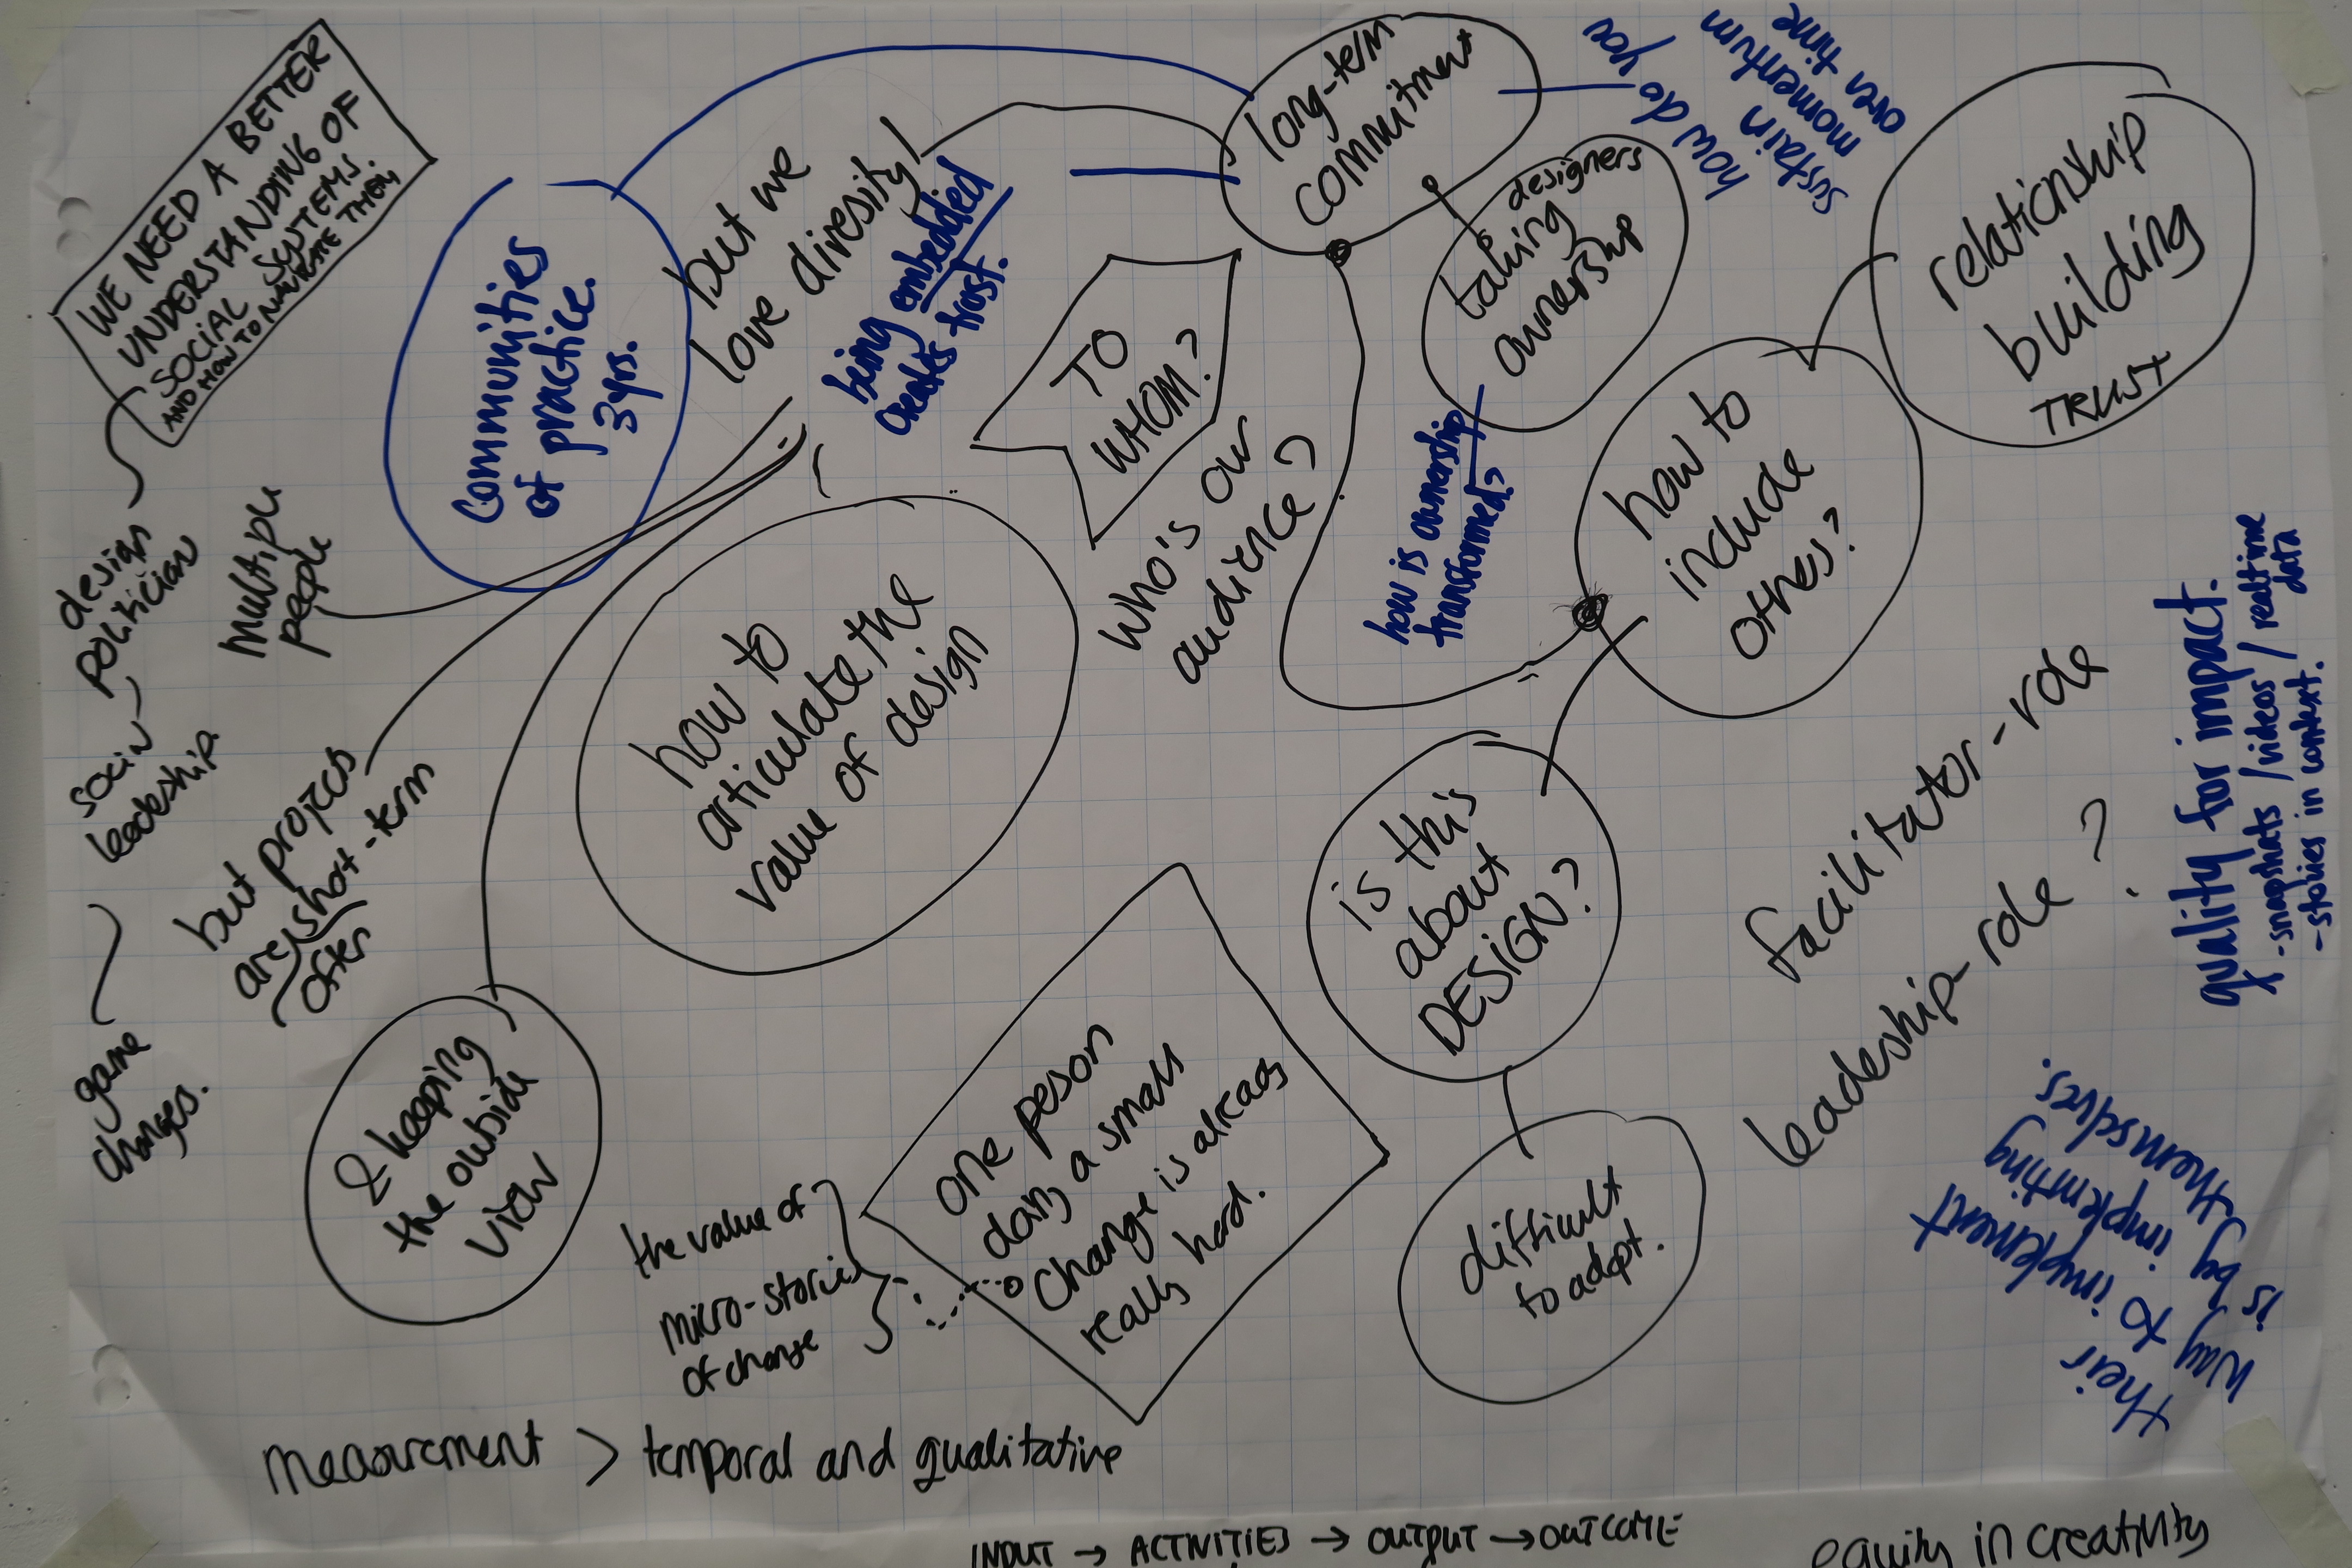 WE NEED A BETTER
UNDERSTANDING OF
SOCIAL SYSTEMS.
AND HOW TO NAVIGATE THEM
design
politician
leadership.
game
changes.
multiple
people
but projects
are shot-term
often
Communities
of practice.
3yrs.
but we
love diresity!
being embedded
creates trust.
long-term
commitment
how do you
sustain
momentum
over time
designers
taking
ownership
how is ownership
transformed?
relationship
building
TRUST
how to
include
others?
TO
WHOM?
who's our
audience?
how to
articulate the
value of design
& keeping
the outside
view
is this
about
DESIGN?
difficult
to adopt.
facilitator-role
leadeship-role ?
quality for impact.
-snapshats / videos / realtime
data
-stories in context.
their
way to implement
is by implemting
themselves.
one peson
doing a small
change is already
really hard.
the value of
micro-stories
of change
measurement > temporal and qualitative
INPUT → ACTIVITIES → OUTPUT → OUTCOME
equity in creativity